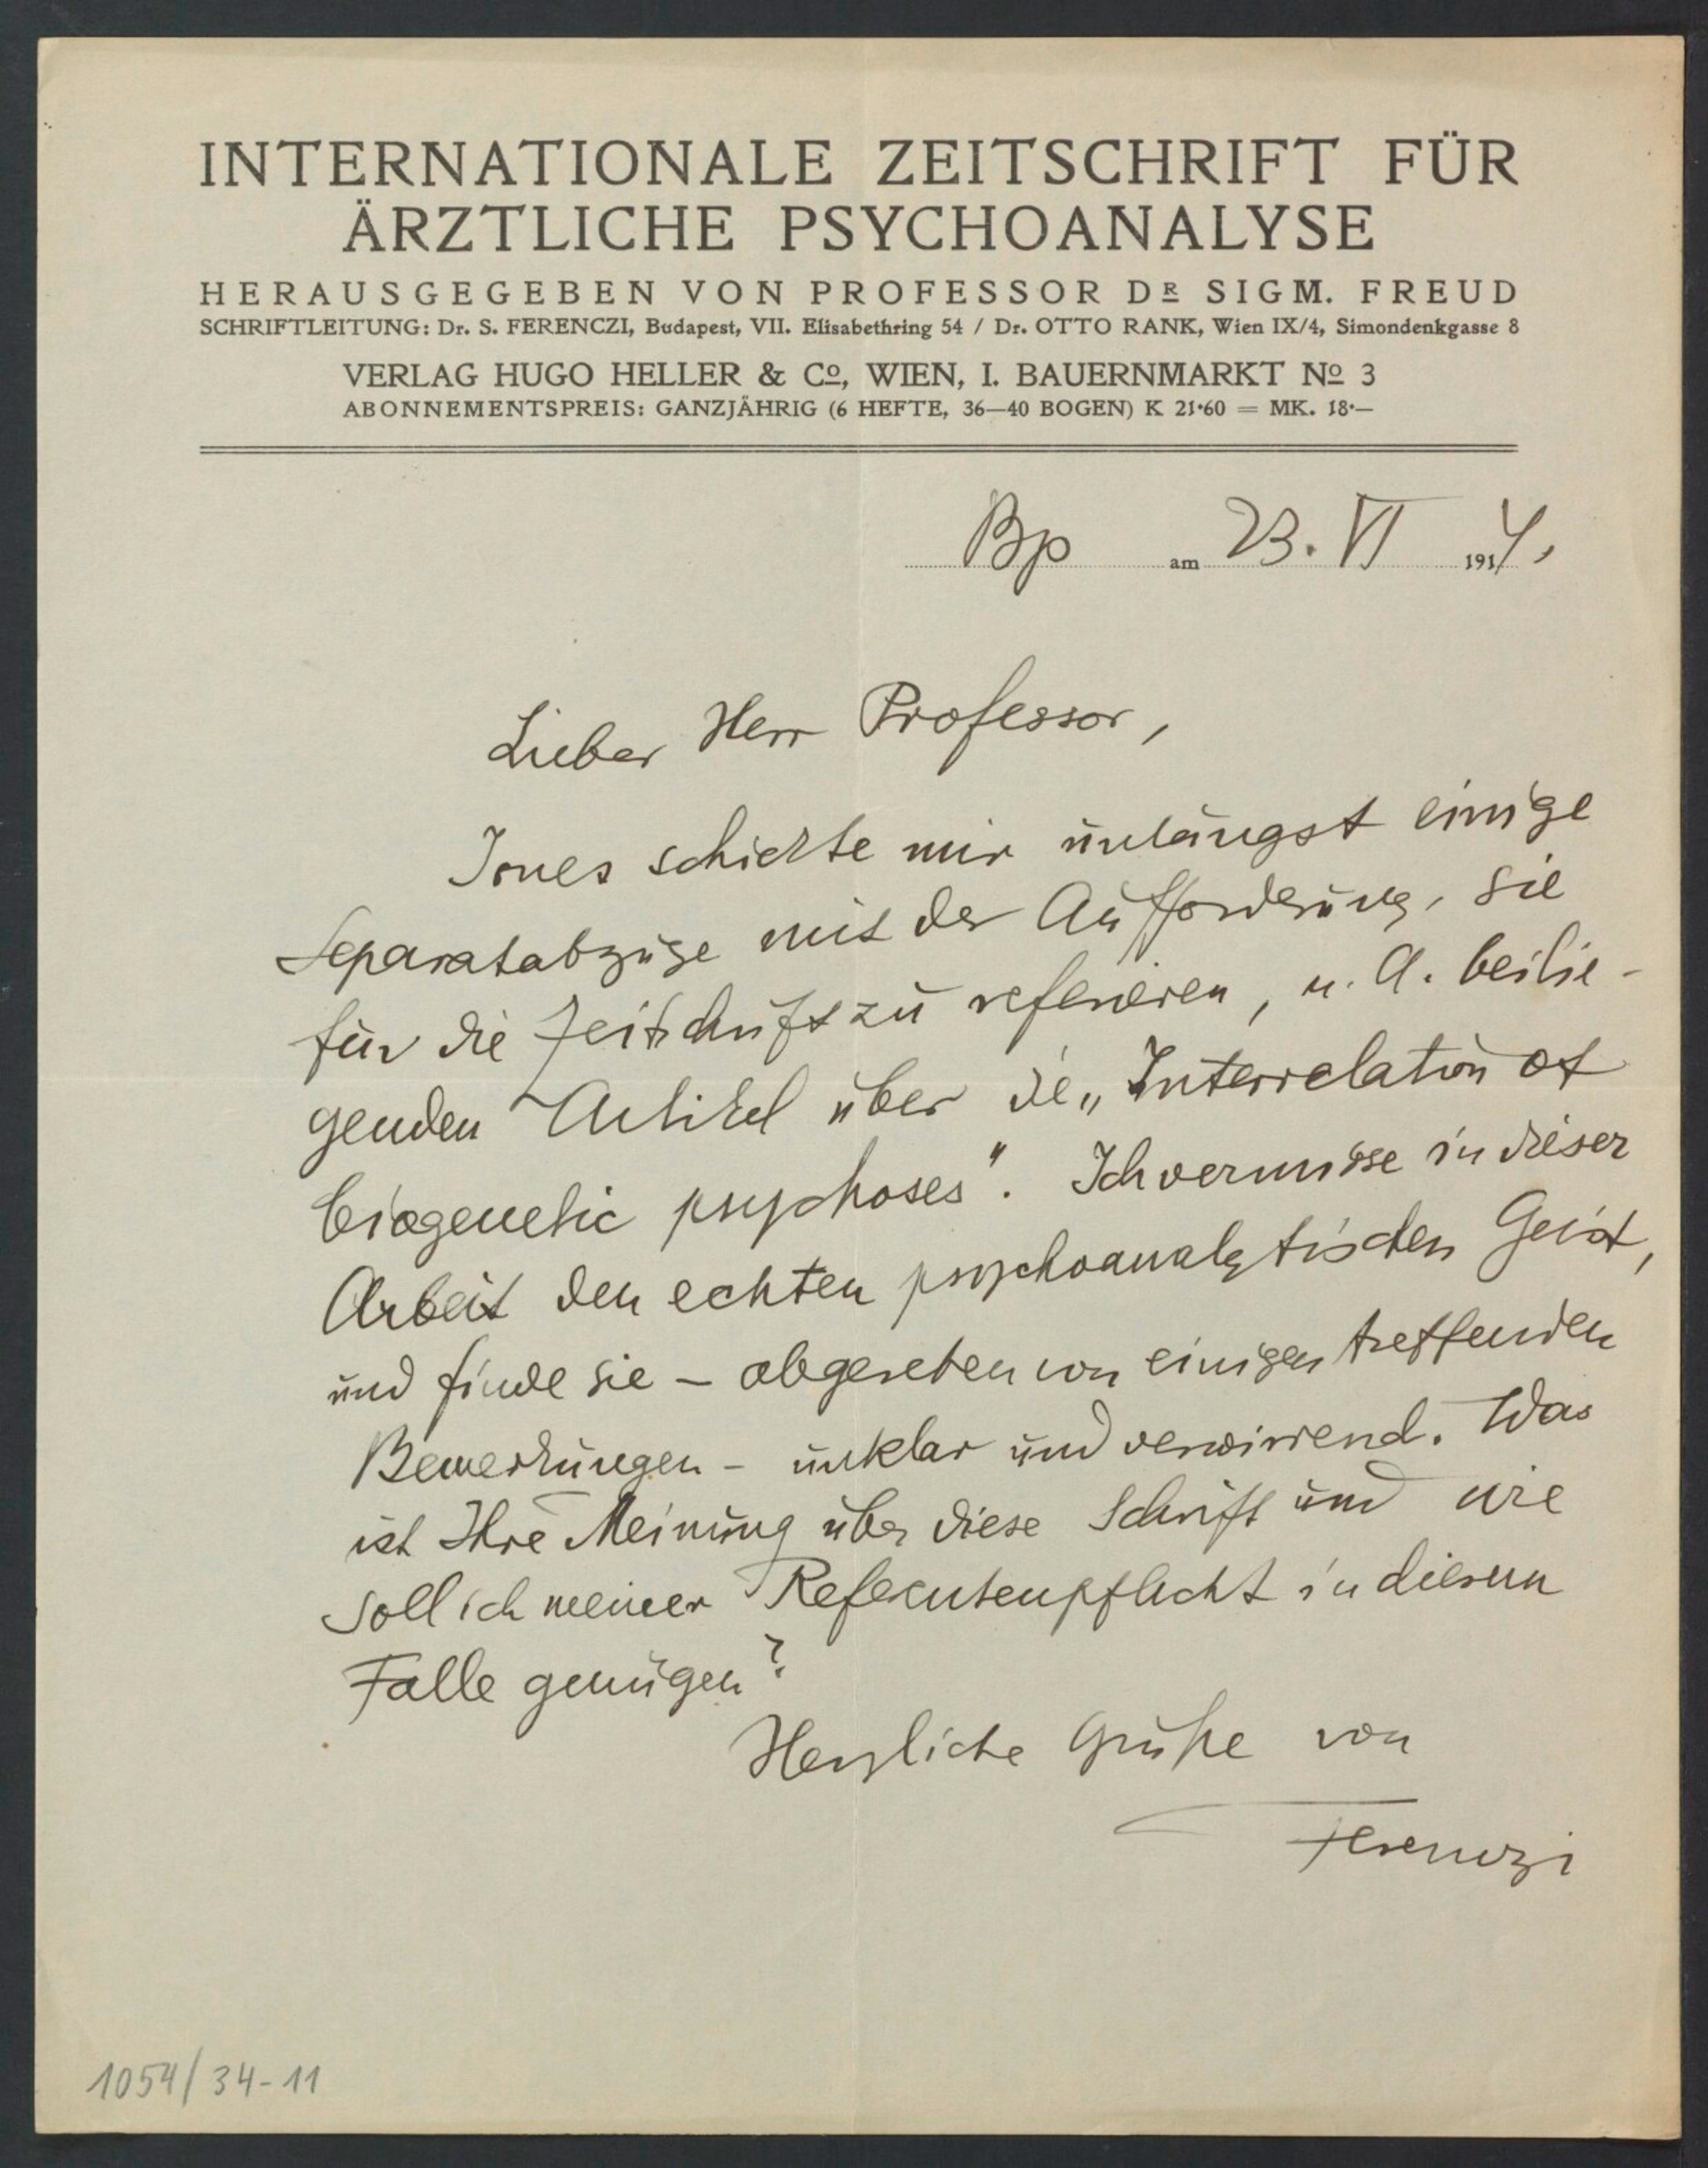 INTERNATIONALE ZEITSCHRIFT FÜR
ÄRZTLICHE PSYCHOANALYSE
HERAUSGEGEBEN VON PROFESSOR DR SIGM. FREUD
SCHRIFTLEITUNG: Dr. S. FERENCZI, Budapest, VII. Elisabethring 54 / Dr. OTTO RANK, Wien IX/4, Simondenkgasse 8
VERLAG HUGO HELLER & Co, WIEN, I. BAUERNMARKT No 3
ABONNEMENTSPREIS: GANZJÄHRIG (6 HEFTE, 36—40 BOGEN) K 21·60 = MK. 18·—
Bp am 23. VI 1914,
Lieber Herr Professor,
Jones schickte mir unlängst einige
Separatabzüge mit der Aufforderung, sie
für die Zeitschrift zu referieren, u. A. beilie-
genden Artikel über die „Interrelation of
biogenetic psychoses". Ich vermisse in dieser
Arbeit den echten psychoanalytischen Geist,
und finde sie – abgesehen von einigen treffenden
Bemerkungen – unklar und verwirrend. Was
ist Ihre Meinung über diese Schrift und wie
soll ich meiner Referentenpflicht in diesem
Falle genügen?
Herzliche Grüße von
Ferenczi
1054/34-11